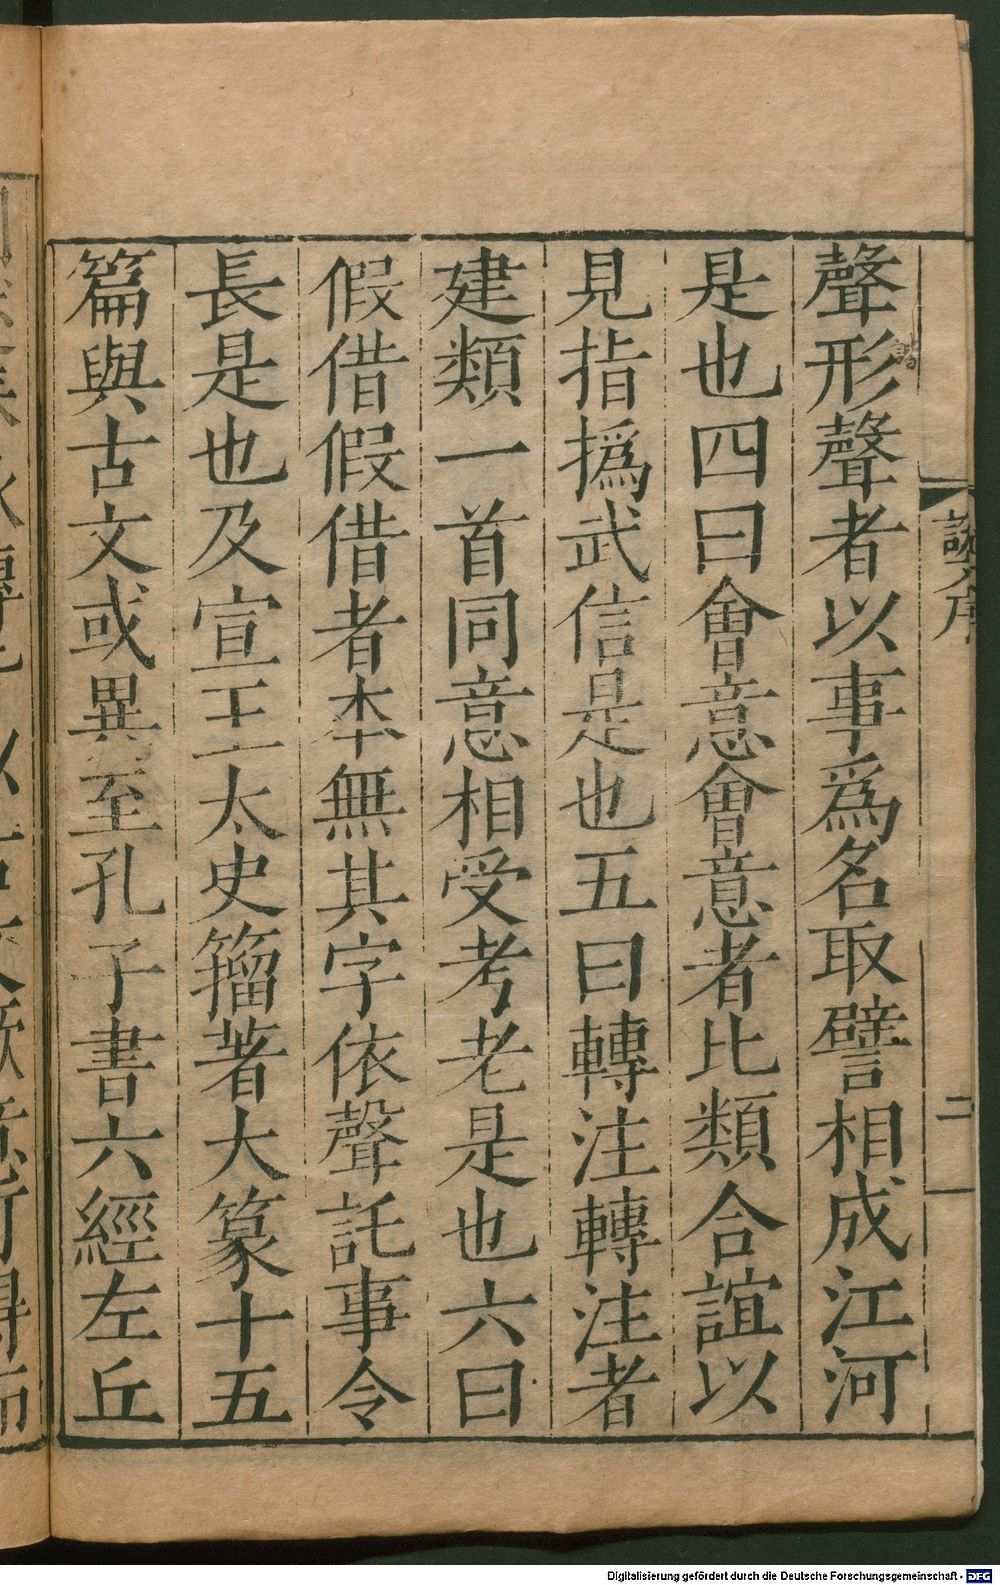 聲形聲者以事爲名取譬相成江河
是也四曰會意會意者比類合誼以
見指撝武信是也五曰轉注轉注者
建類一首同意相受考老是也六曰
假借假借者本無其字依聲託事令
長是也及宣王太史籀著大篆十五
篇與古文或異至孔子書六經左丘
說文序
二
Digitalisierung gefördert durch die Deutsche Forschungsgemeinschaft - DFG